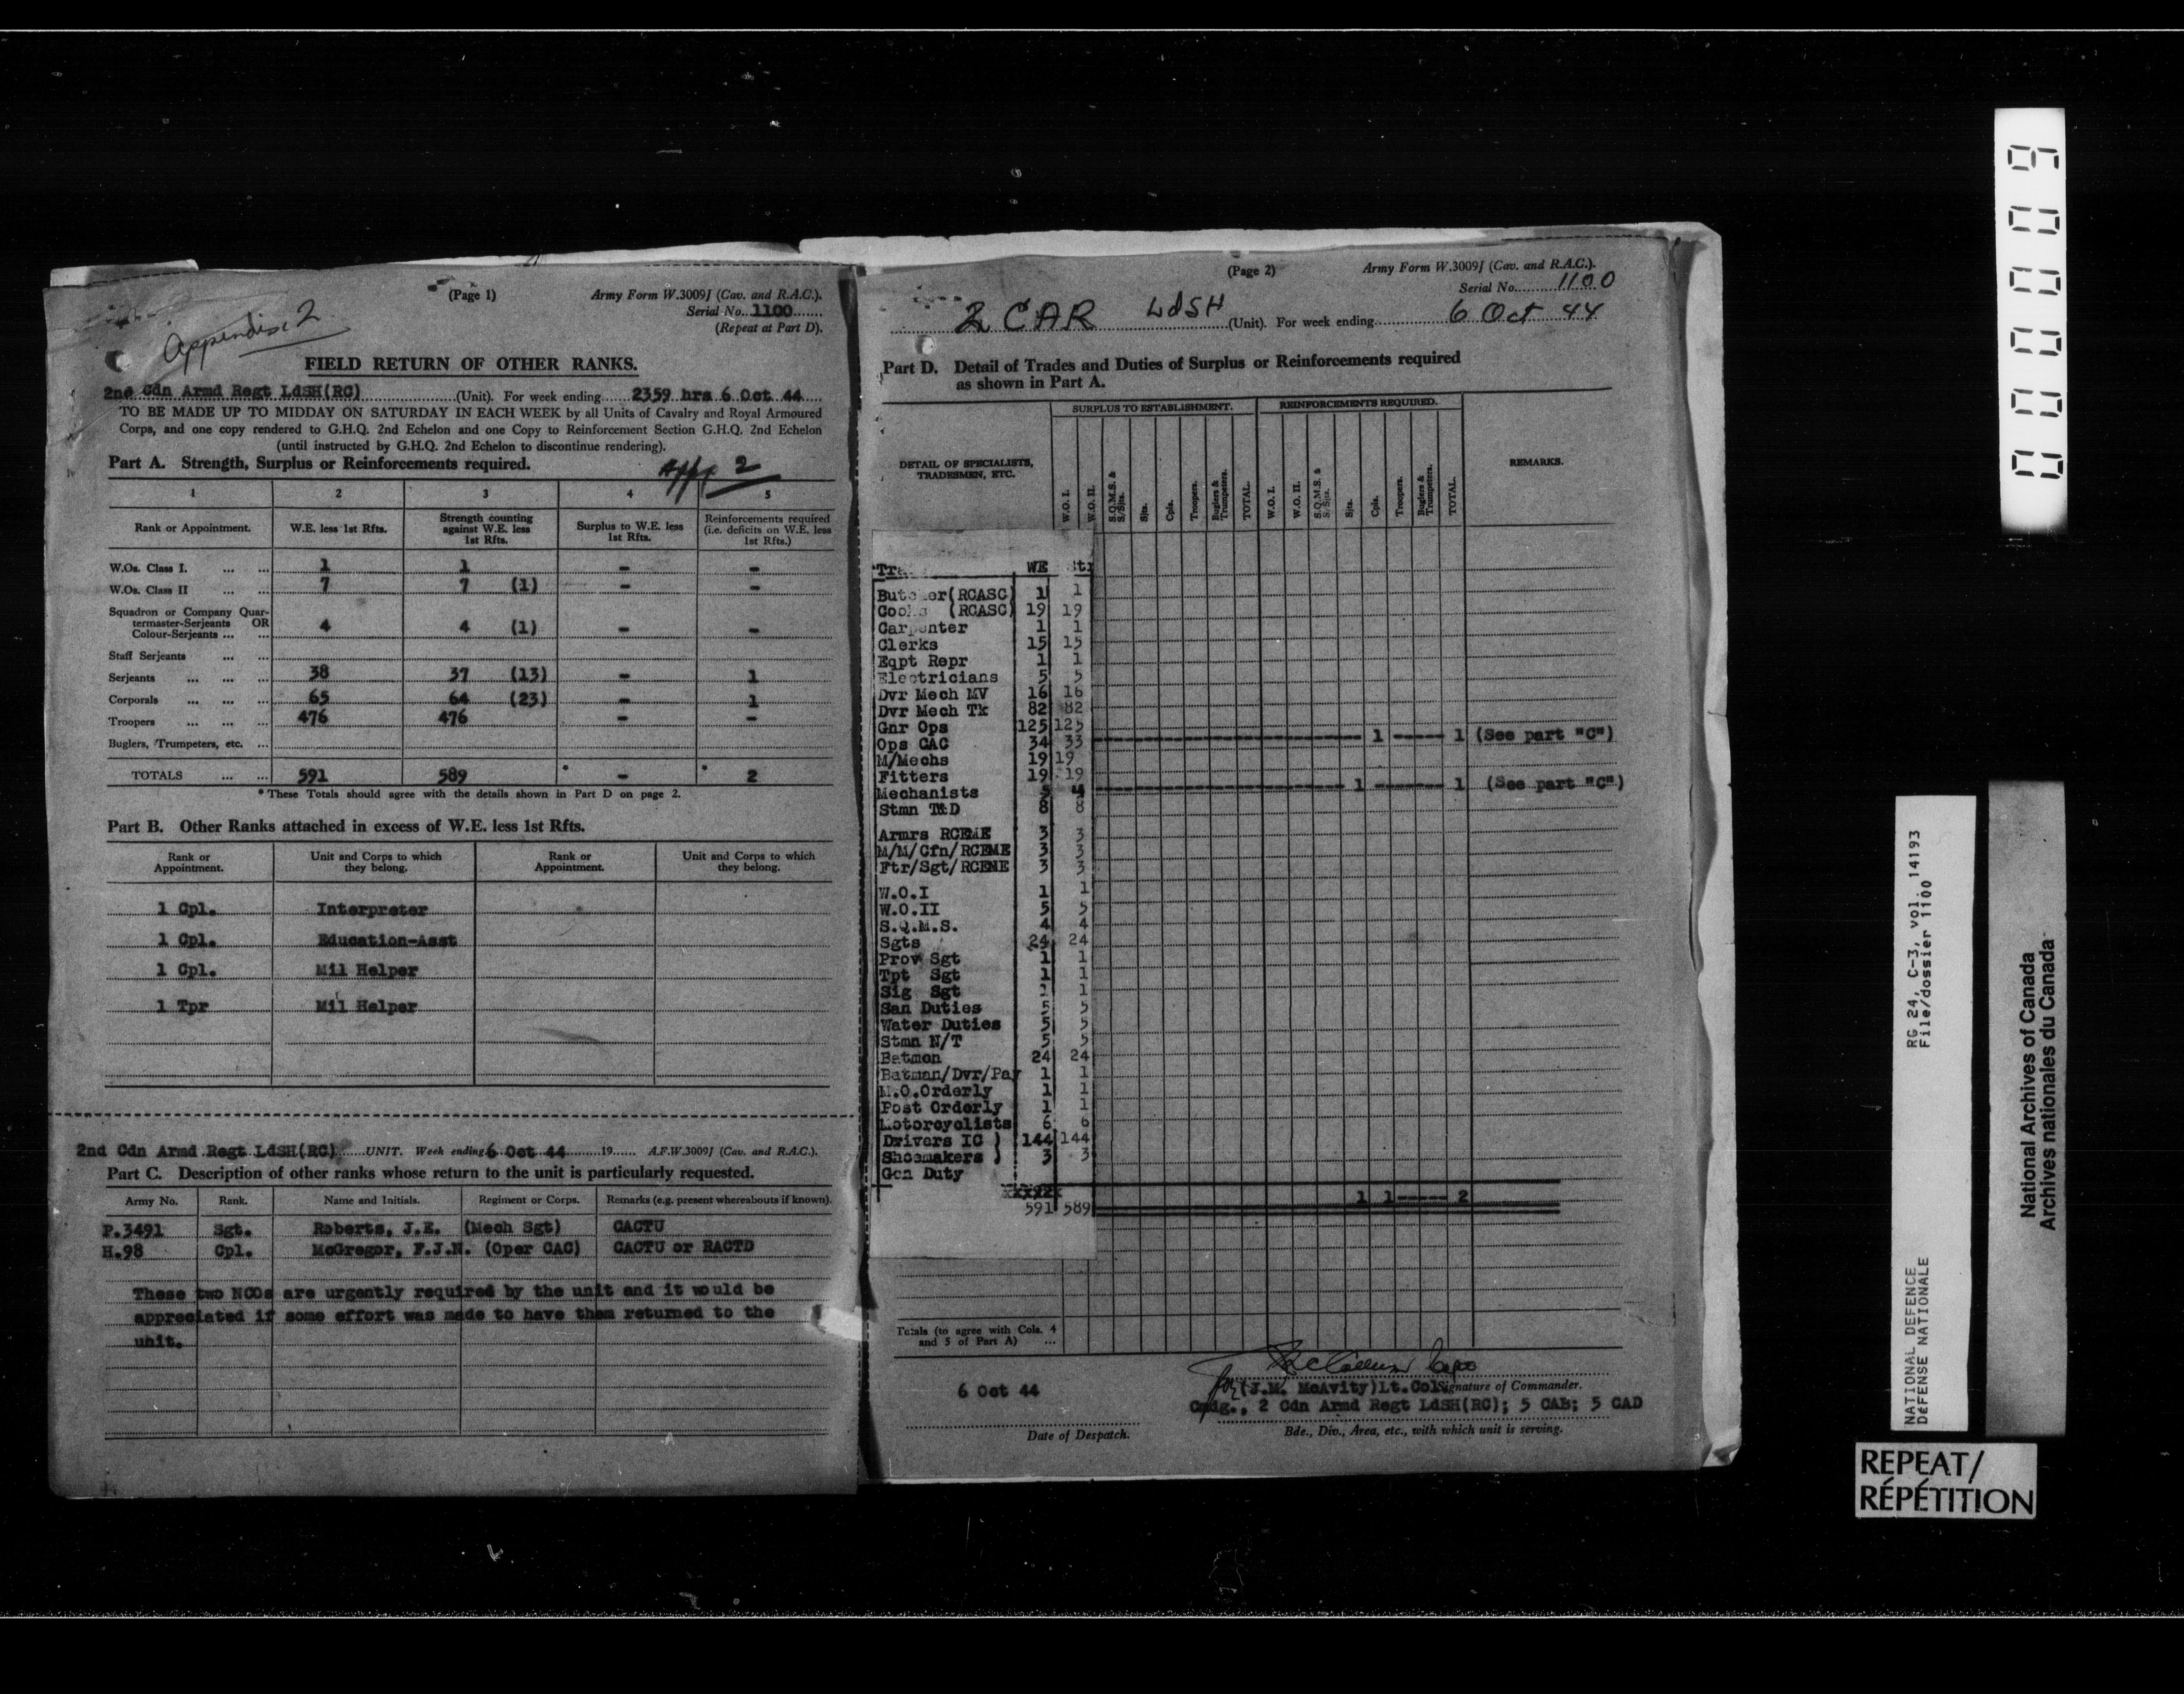 (Page 1)
Army Form W.3009J (Cav. and R.A.C.).
Serial No. 1100
(Repeat at Part D).
Appendix 2
FIELD RETURN OF OTHER RANKS.
2nd Cdn Armd Regt LdSH(RC) (Unit). For week ending 2359 hrs 6 Oct 44
TO BE MADE UP TO MIDDAY ON SATURDAY IN EACH WEEK by all Units of Cavalry and Royal Armoured
Corps, and one copy rendered to G.H.Q. 2nd Echelon and one Copy to Reinforcement Section G.H.Q. 2nd Echelon
(until instructed by G.H.Q. 2nd Echelon to discontinue rendering).
Part A. Strength, Surplus or Reinforcements required.
App 2
1 2 3 4 5
Rank or Appointment. W.E. less 1st Rfts. Strength counting against W.E. less 1st Rfts. Surplus to W.E. less 1st Rfts. Reinforcements required (i.e. deficits on W.E. less 1st Rfts.)
W.Os. Class I. ... ... 1 1 - -
W.Os. Class II ... ... 7 7 (1) - -
Squadron or Company Quar-
termaster-Serjeants OR
Colour-Serjeants ... ... 4 4 (1) - -
Staff Serjeants ... ...
Serjeants ... ... ... 38 37 (13) - 1
Corporals ... ... ... 65 64 (23) - 1
Troopers ... ... ... 476 476 - -
Buglers, Trumpeters, etc. ...
TOTALS ... ... 591 589 * - * 2
* These Totals should agree with the details shown in Part D on page 2.
Part B. Other Ranks attached in excess of W.E. less 1st Rfts.
Rank or Appointment. Unit and Corps to which they belong. Rank or Appointment. Unit and Corps to which they belong.
1 Cpl. Interpreter
1 Cpl. Education-Asst
1 Cpl. Mil Helper
1 Tpr Mil Helper
2nd Cdn Armd Regt LdSH(RC) UNIT. Week ending 6 Oct 44 19...... A.F.W.3009J (Cav. and R.A.C.).
Part C. Description of other ranks whose return to the unit is particularly requested.
Army No. Rank. Name and Initials. Regiment or Corps. Remarks (e.g. present whereabouts if known).
P.3491 Sgt. Roberts, J.E. (Mech Sgt) CACTU
H.98 Cpl. McGregor, F.J.N. (Oper CAC) CACTU or RACTD
These two NCOs are urgently required by the unit and it would be
appreciated if some effort was made to have them returned to the
unit.
(Page 2)
Army Form W.3009J (Cav. and R.A.C.).
Serial No. 1100
2 CAR LdSH (Unit). For week ending 6 Oct 44
Part D. Detail of Trades and Duties of Surplus or Reinforcements required
as shown in Part A.
DETAIL OF SPECIALISTS, TRADESMEN, ETC. SURPLUS TO ESTABLISHMENT. REINFORCEMENTS REQUIRED. REMARKS.
W.O. I. W.O. II. S.Q.M.S. & S/Sjts. Sjts. Cpls. Troopers. Buglers & Trumpeters. TOTAL. W.O. I. W.O. II. S.Q.M.S. & S/Sjts. Sjts. Cpls. Troopers. Buglers & Trumpeters. TOTAL.
WE
Butcher(RCASC) 1 1
Cooks (RCASC) 19 19
Carpenter 1 1
Clerks 15 15
Eqpt Repr 1 1
Electricians 5 5
Dvr Mech MV 16 16
Dvr Mech Tk 82 82
Gnr Ops 125 125
Ops CAC 34 33 1 1 (See part "C")
M/Mechs 19 19
Fitters 19 19
Mechanists 5 4 1 1 (See part "C")
Stmn T&D 8 8
Armrs RCEME 3 3
M/M/Cfn/RCEME 3 3
Ftr/Sgt/RCEME 3 3
W.O.I 1 1
W.O.II 5 5
S.Q.M.S. 4 4
Sgts 24 24
Prov Sgt 1 1
Tpt Sgt 1 1
Sig Sgt 1 1
San Duties 5 5
Water Duties 5 5
Stmn N/T 5 5
Batmen 24 24
Batman/Dvr/Pay 1 1
M.O.Orderly 1 1
Post Orderly 1 1
Motorcyclists 6 6
Drivers IC ) 144 144
Shoemakers ) 3 3
Gen Duty
1 1 2
591 589
Totals (to agree with Cols. 4
and 5 of Part A) ...
6 Oct 44
Date of Despatch.
for (J.M. McAvity)Lt.Col. Signature of Commander.
Cmdg., 2 Cdn Armd Regt LdSH(RC); 5 CAB; 5 CAD
Bde., Div., Area, etc., with which unit is serving.
00009
RG 24, C-3, vol. 14193
File/dossier 1100
NATIONAL DEFENCE
DÉFENSE NATIONALE
National Archives of Canada
Archives nationales du Canada
REPEAT/
RÉPÉTITION